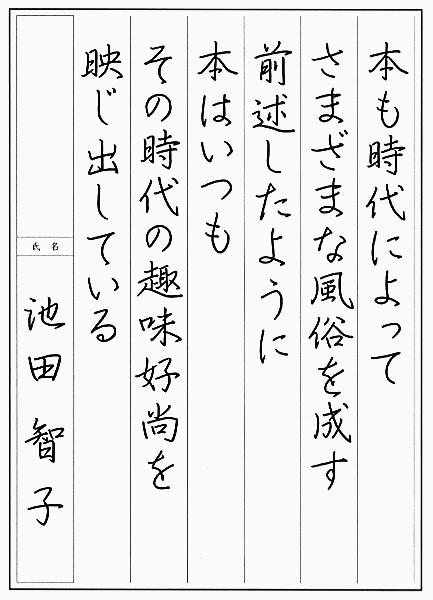 本も時代によって
さまざまな風俗を成す
前述したように
本はいつも
その時代の趣味好尚を
映じ出している
氏名
池田智子